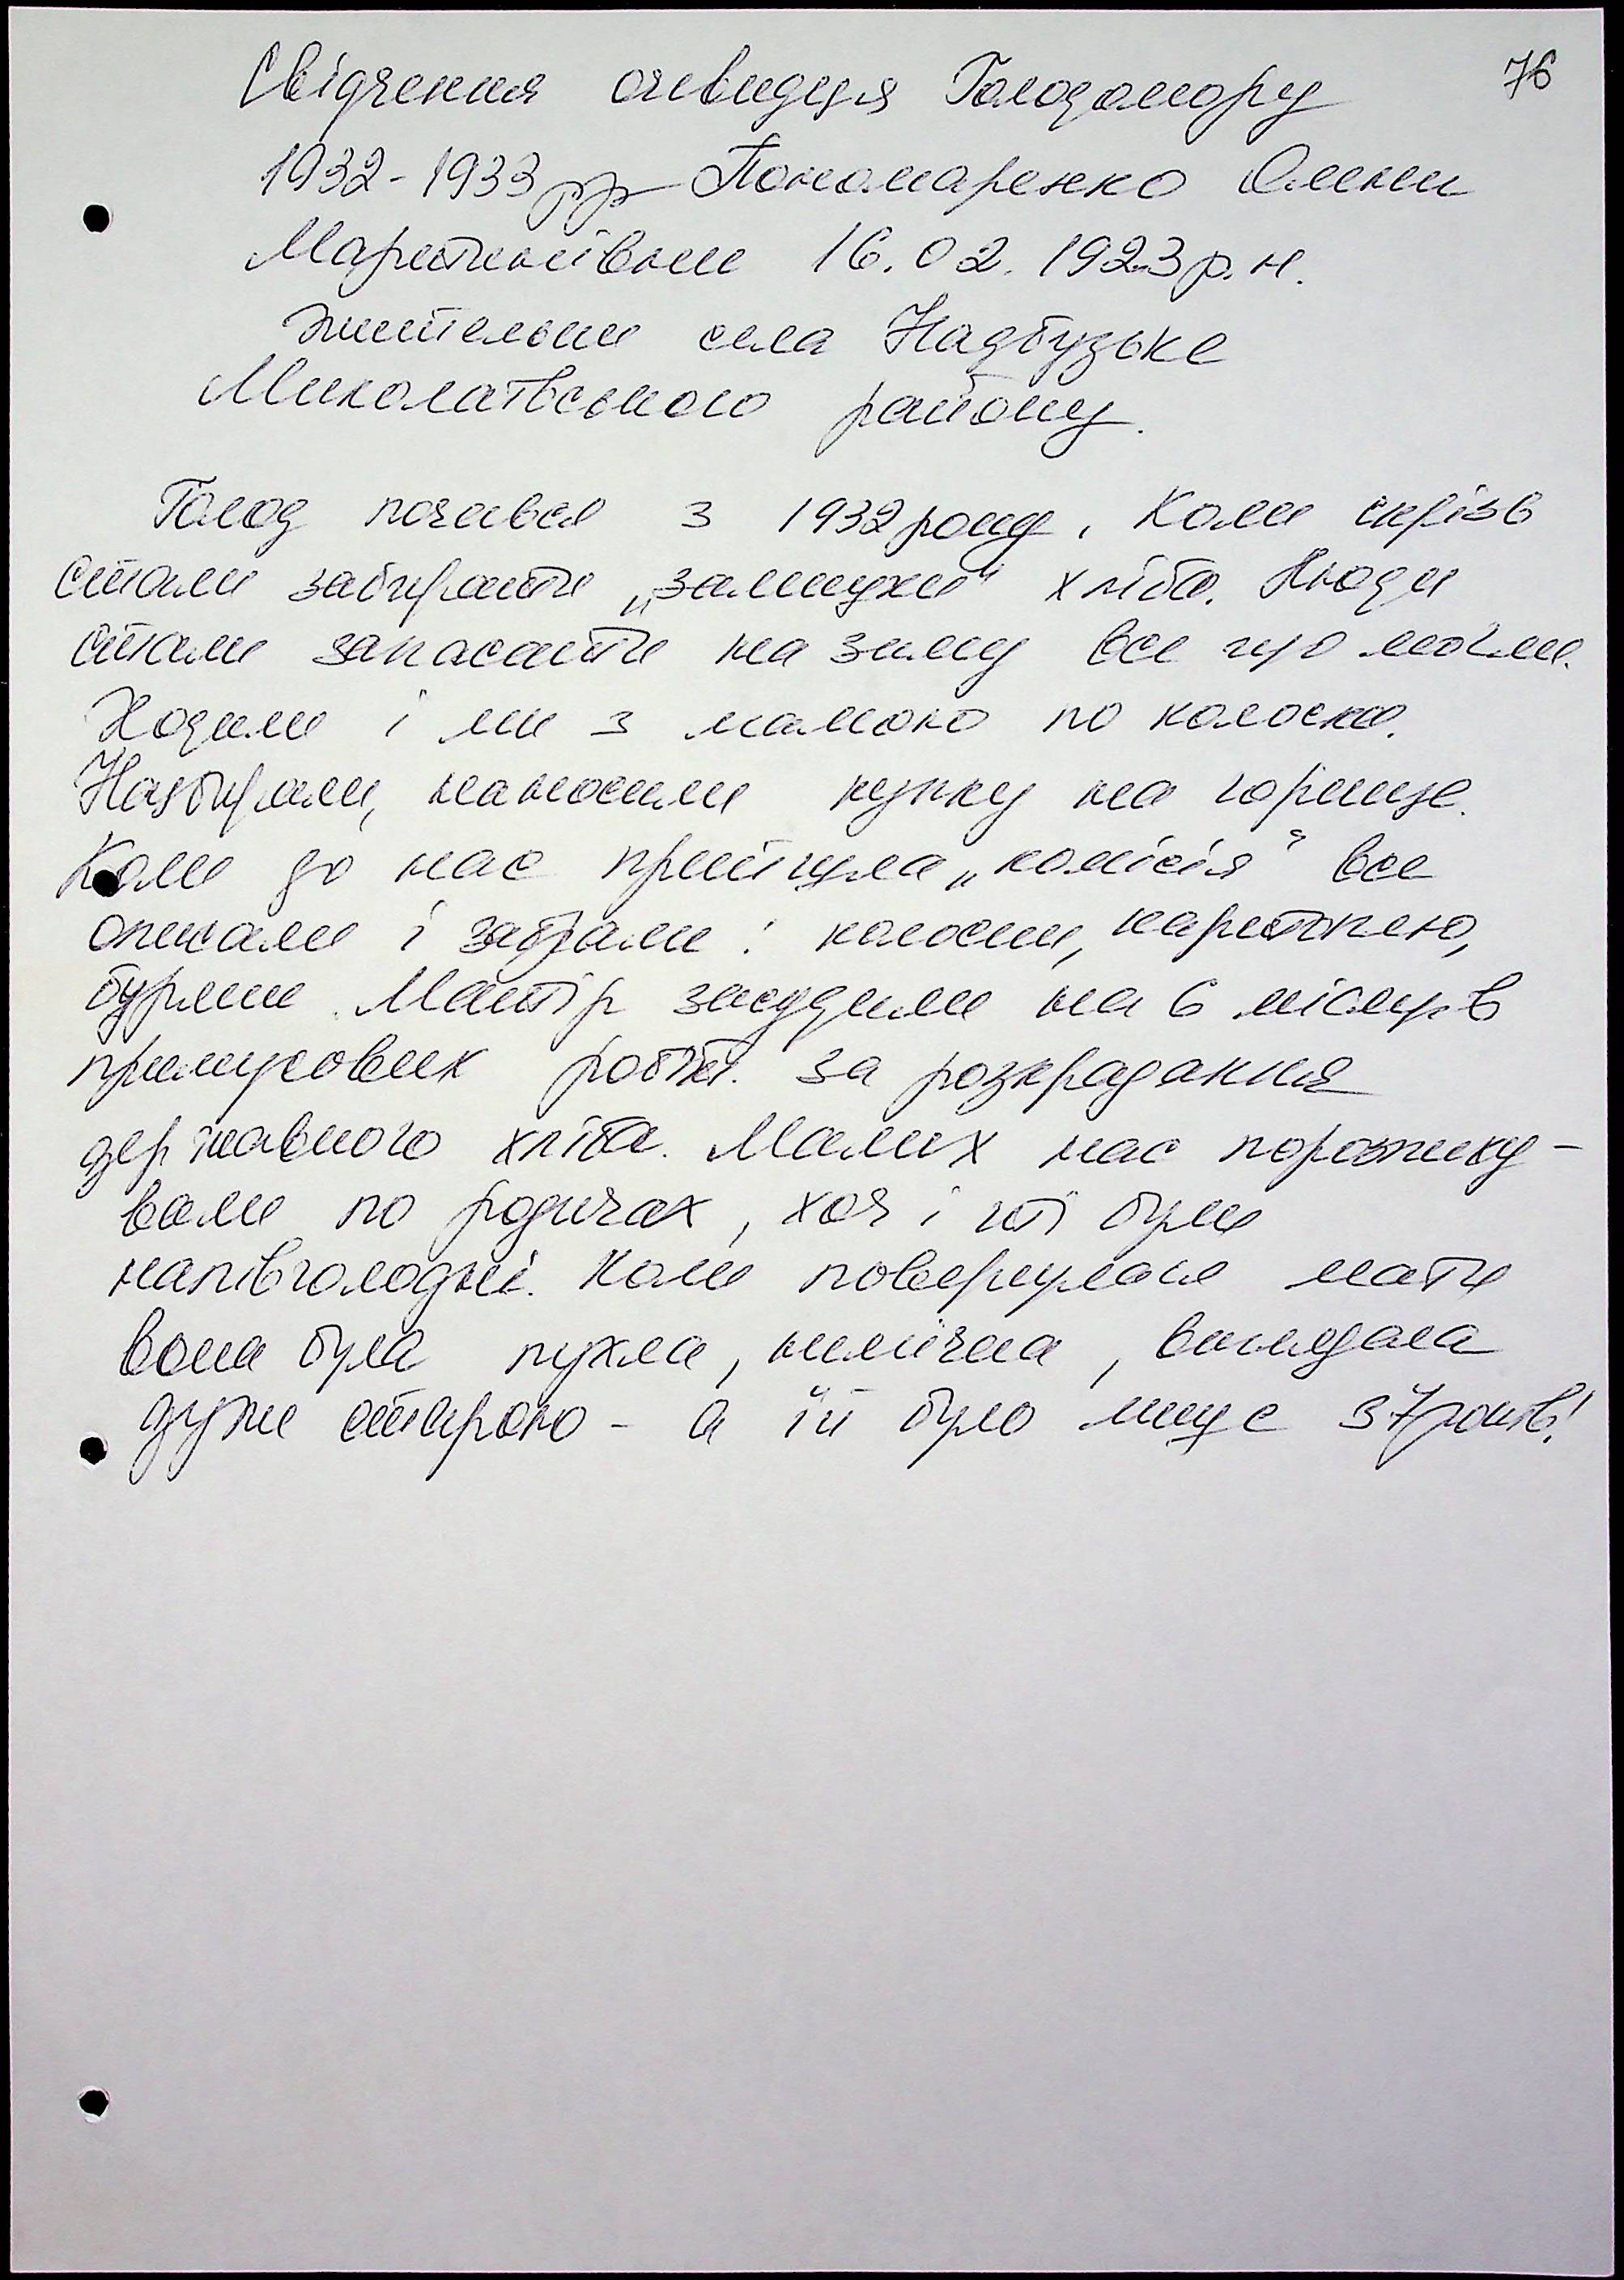 76
Свідчення очевидця Голодомору
1932-1933 рр Пономаренко Олени
Мартинівни 16.02.1923 р.н.
жительки села Надбузьке
Миколаївського району.
Голод почався з 1932 року. Коли скрізь
стали забирати „залишки" хліба. Люди
стали запасати на зиму все що могли.
Ходили і ми з мамою по колоски.
Назбирали, наносили купку на горище.
Коли до нас прийшла „комісія" все
описали і забрали: колоски, картоплю,
буряки. Матір засудили на 6 місяців
примусових робіт. за розкрадання
державного хліба. Малих нас порозпиху-
вали по родичах, хоч і ті були
напівголодні. Коли повернулася мати
вона була пухла, немічна, виглядала
дуже старою - а їй було лише 37 років!